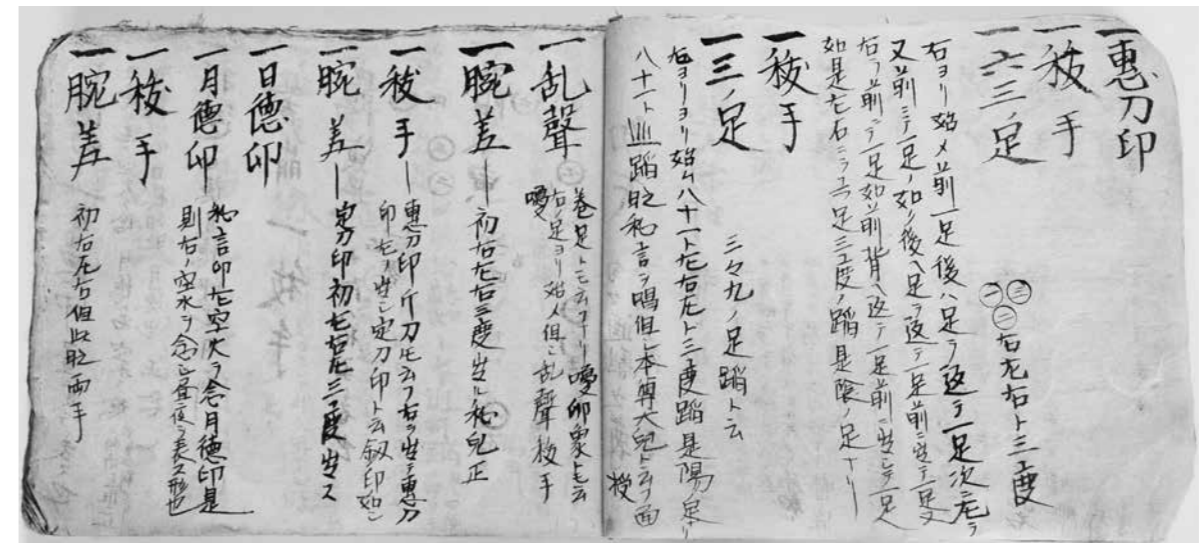 一惠刀印
一稜手
一六三ノ足 三二一 右左右ト三度
右ヨリ始メ前一足後ハ足ヲ返テ一足次ニ左ヲ
又前ニテ一足ノ如ノ後ハ足ヲ返テ一足前ニ出テ一足又
右ヲ前ニテ一足如前背ヘ返テ一足前ニ出シテ一足
如是左右ニテ三足三度ノ踏是陰ノ足ナリ
一稜手
一三ノ足 三々九ノ足踏ト云
右ヨリ始ム八十一ト左右左ト三度踏是陽ノ足ナリ
八十一ト 踏時秘言ヲ唱但シ本尊大 ト云フ面 授
一乱聲 巻足トモ云フ 印象トモ云
右ノ足ヨリ始ム但シ乱聲稜手
一腕差 初右左右三度出ル 正
一稜手 惠刀印ハ刀トモ云フ右ヲ出テ惠刀
印左ノ出シ定刀印ト云釼印如シ
一腕差 定刀印初左右左三度出ス
一日德印
一月德印 秘言印左空火ヲ念月德印是
則右ノ空水ヲ念シ昼夜ヲ表ス形也
一稜手
一腕差 初右左右但此時両手